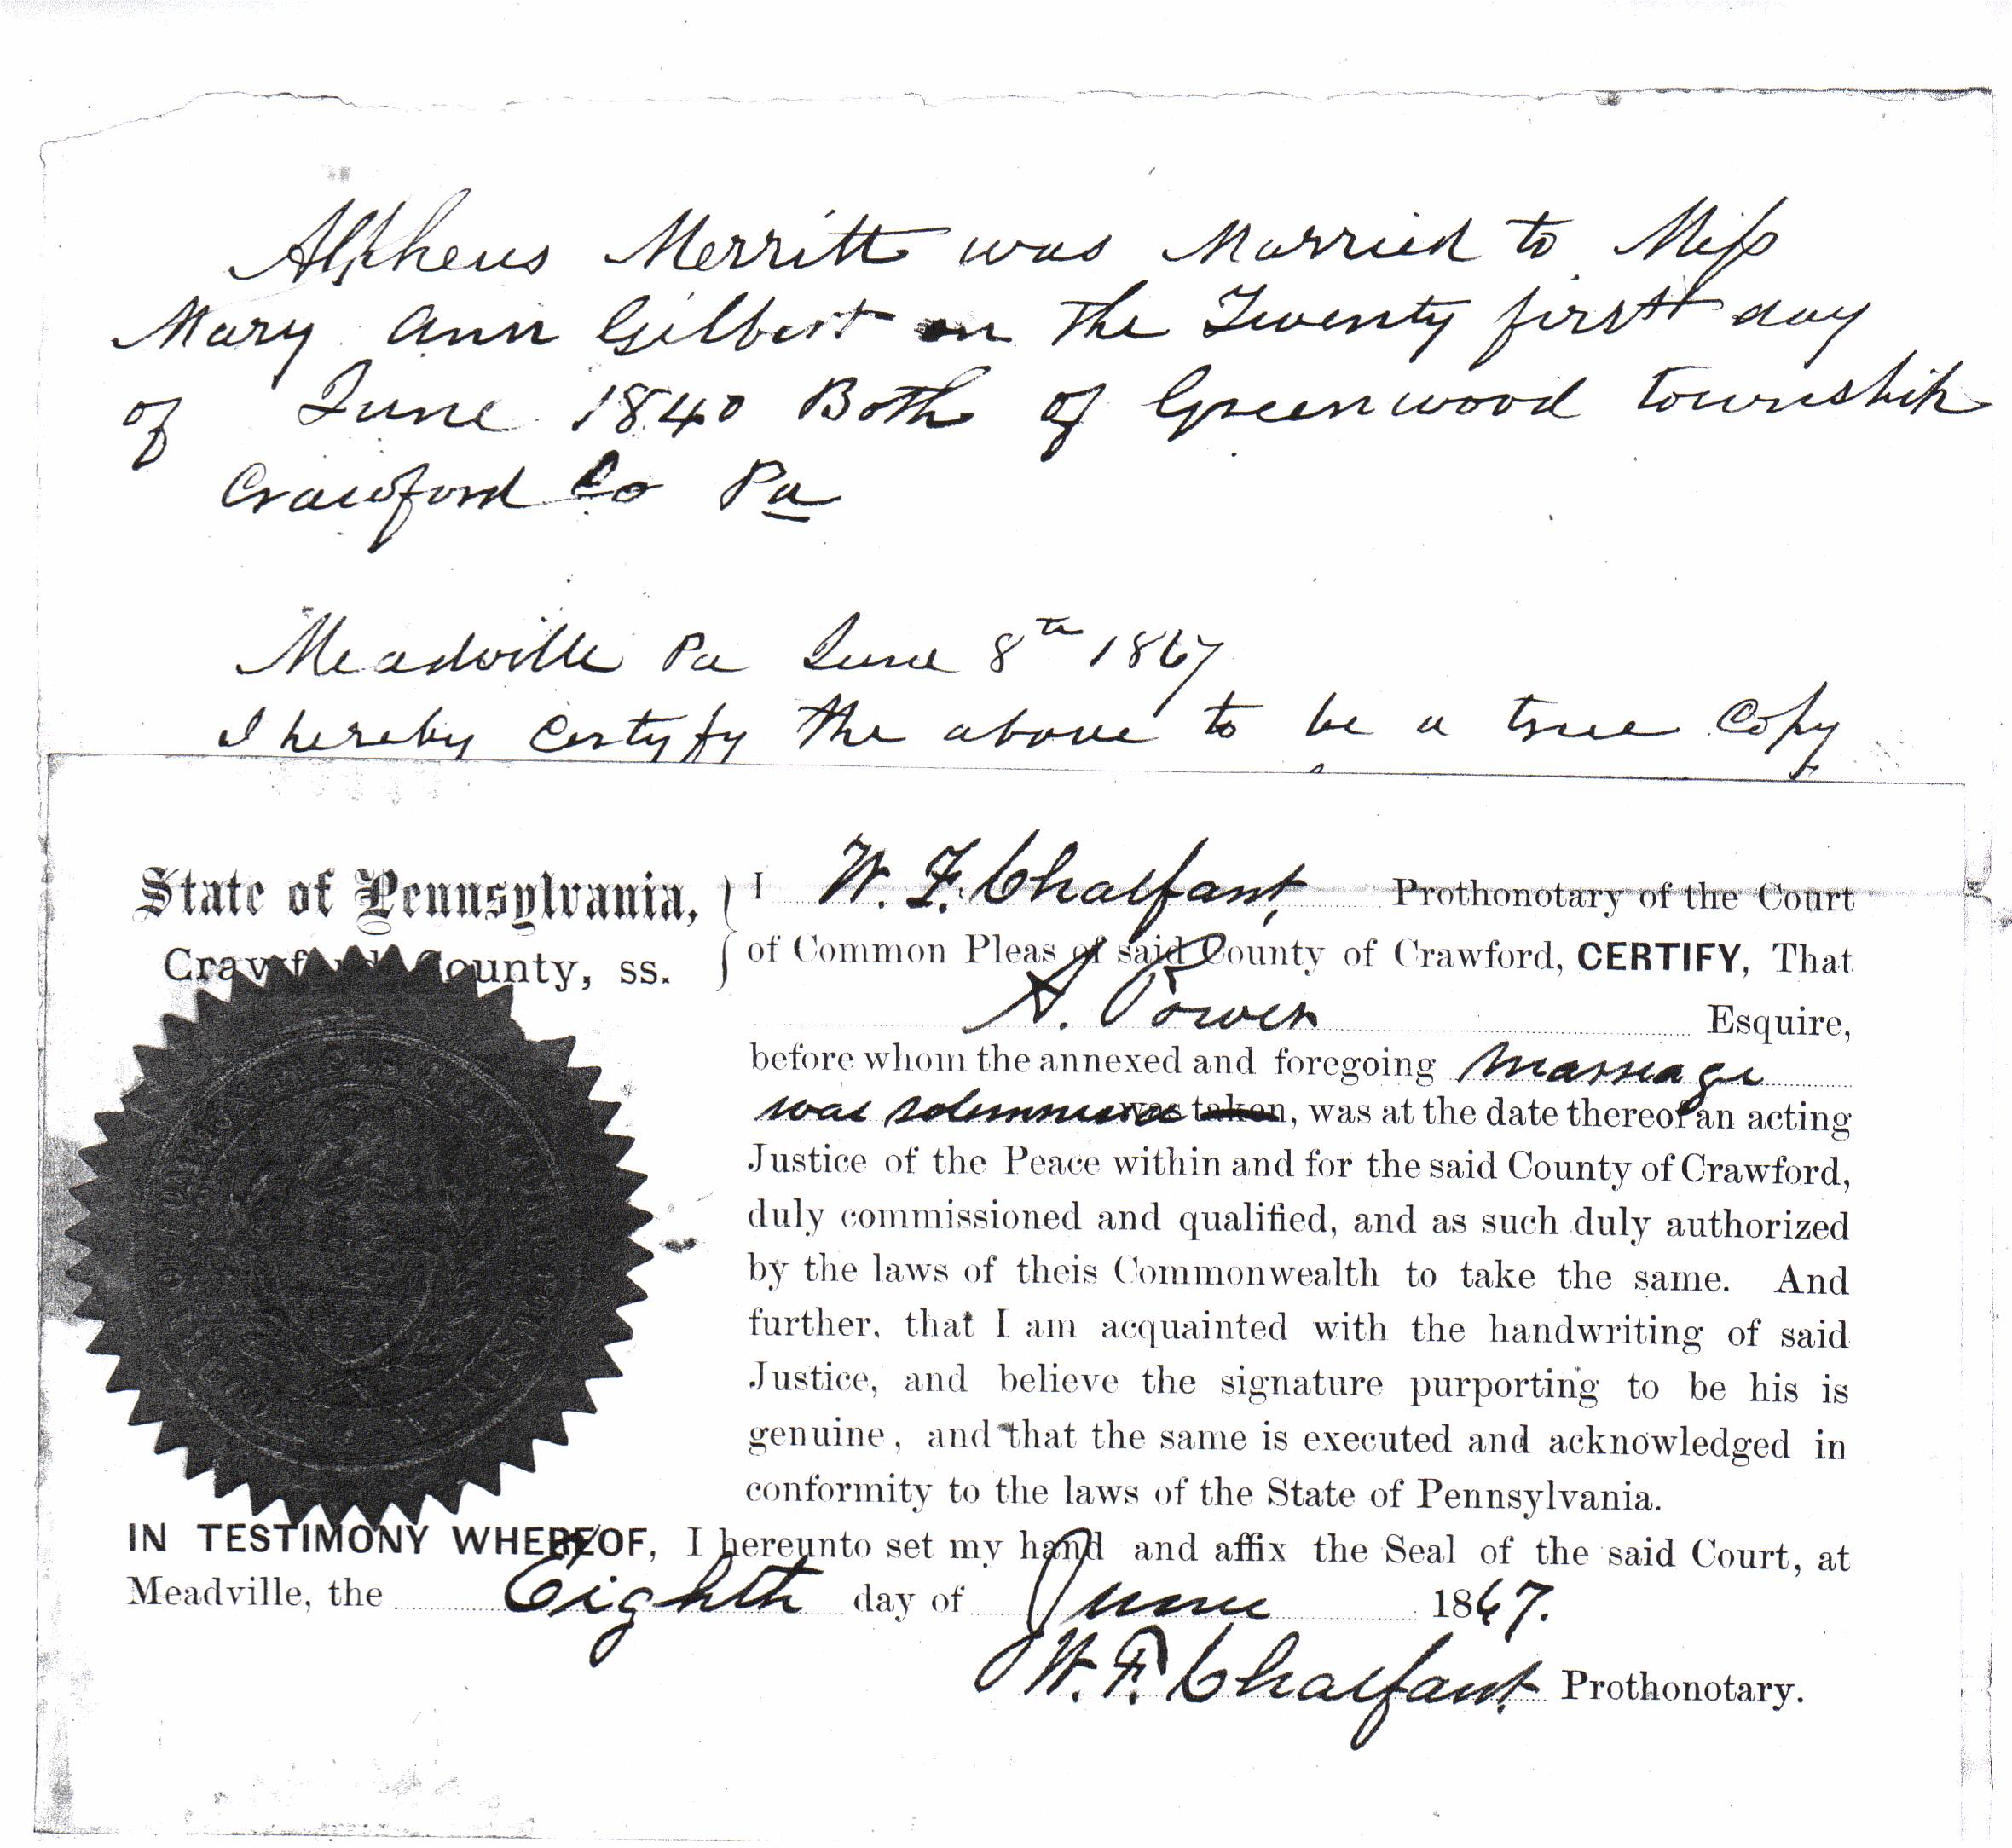 Alpheus Merritt was Married to Miss
Mary Ann Gilbert on the Twenty first day
of June 1840 Both of Greenwood township
Crawford Co Pa
Meadville Pa June 8th 1867
I hereby Certify the above to be a true Copy
State of Pennsylvania,
Crawford County, ss.
I W. F. Chalfant, Prothonotary of the Court
of Common Pleas of said County of Crawford, CERTIFY, That
A. Power Esquire,
before whom the annexed and foregoing marriage
was solemnized was taken, was at the date thereof an acting
Justice of the Peace within and for the said County of Crawford,
duly commissioned and qualified, and as such duly authorized
by the laws of theis Commonwealth to take the same. And
further, that I am acquainted with the handwriting of said
Justice, and believe the signature purporting to be his is
genuine, and that the same is executed and acknowledged in
conformity to the laws of the State of Pennsylvania.
IN TESTIMONY WHEREOF, I hereunto set my hand and affix the Seal of the said Court, at
Meadville, the Eighth day of June 1867.
W. F. Chalfant Prothonotary.